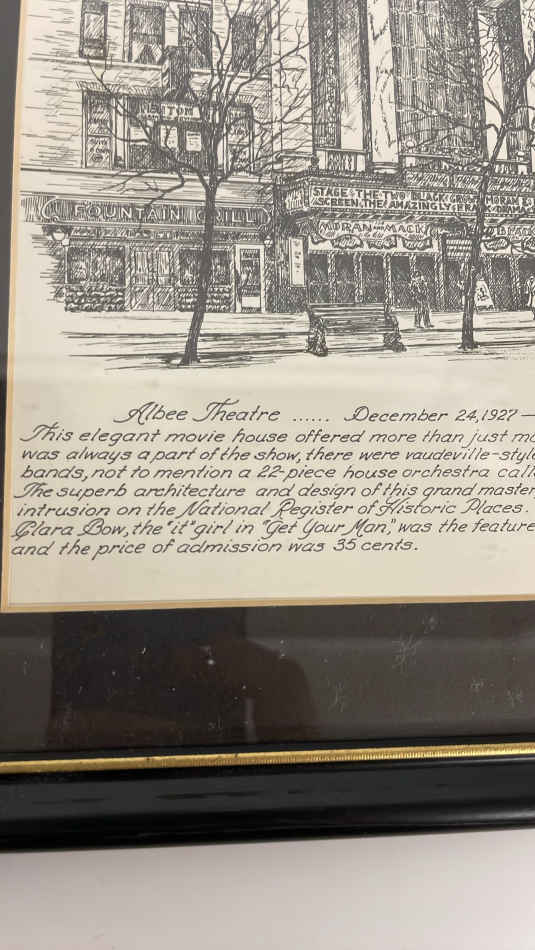 FOUNTAIN GRILL
STAGE: THE TWO BLACK CROWS MORAN &
SCREEN: THE AMAZINGLY FRANK DRAMA
MORAN AND MACK
Albee Theatre ...... December 24, 1927 —
This elegant movie house offered more than just mo
was always a part of the show, there were vaudeville-style
bands, not to mention a 22-piece house orchestra call
The superb architecture and design of this grand master
intrusion on the National Register of Historic Places.
Clara Bow, the "it" girl in "Get Your Man," was the feature
and the price of admission was 35 cents.